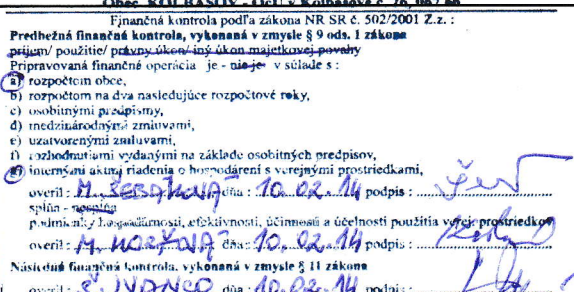 Obec KOLBASOV - OcÚ v Kolbasove č. 26, 067 66
Finančná kontrola podľa zákona NR SR č. 502/2001 Z.z. :
Predbežná finančná kontrola, vykonaná v zmysle § 9 ods. 1 zákona
príjem/ použitie/ právny úkon/ iný úkon majetkovej povahy
Pripravovaná finančné operácia je - nie je v súlade s :
a) rozpočtom obce,
b) rozpočtom na dva nasledujúce rozpočtové roky,
c) osobitnými predpismy,
d) medzinárodnými zmluvami,
e) uzatvorenými zmluvami,
f) rozhodnutiami vydanými na základe osobitných predpisov,
g) internými aktmi riadenia o hospodárení s verejnými prostriedkami,
overil : M. ŠEBÁKOVÁ dňa : 10.02.14 podpis :
splňa - nesplňa
podmienky hospodárnosti, efektívnosti, účinnosti a účelnosti použitia verej. prostriedkov
overil : M. dňa : 10.02.14 podpis :
Následná finančná kontrola, vykonaná v zmysle § 11 zákona
overil : Š. IVANCO dňa : 10.02.14 podpis :